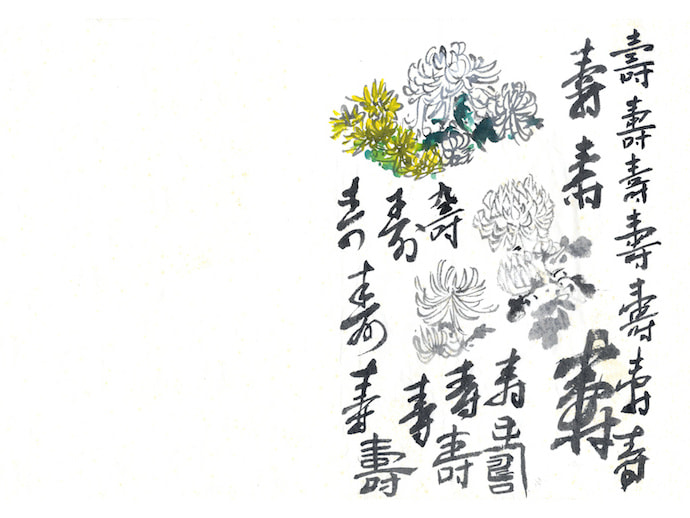 壽壽壽壽壽壽壽
壽壽壽
壽壽壽
壽壽壽壽
壽壽壽
壽